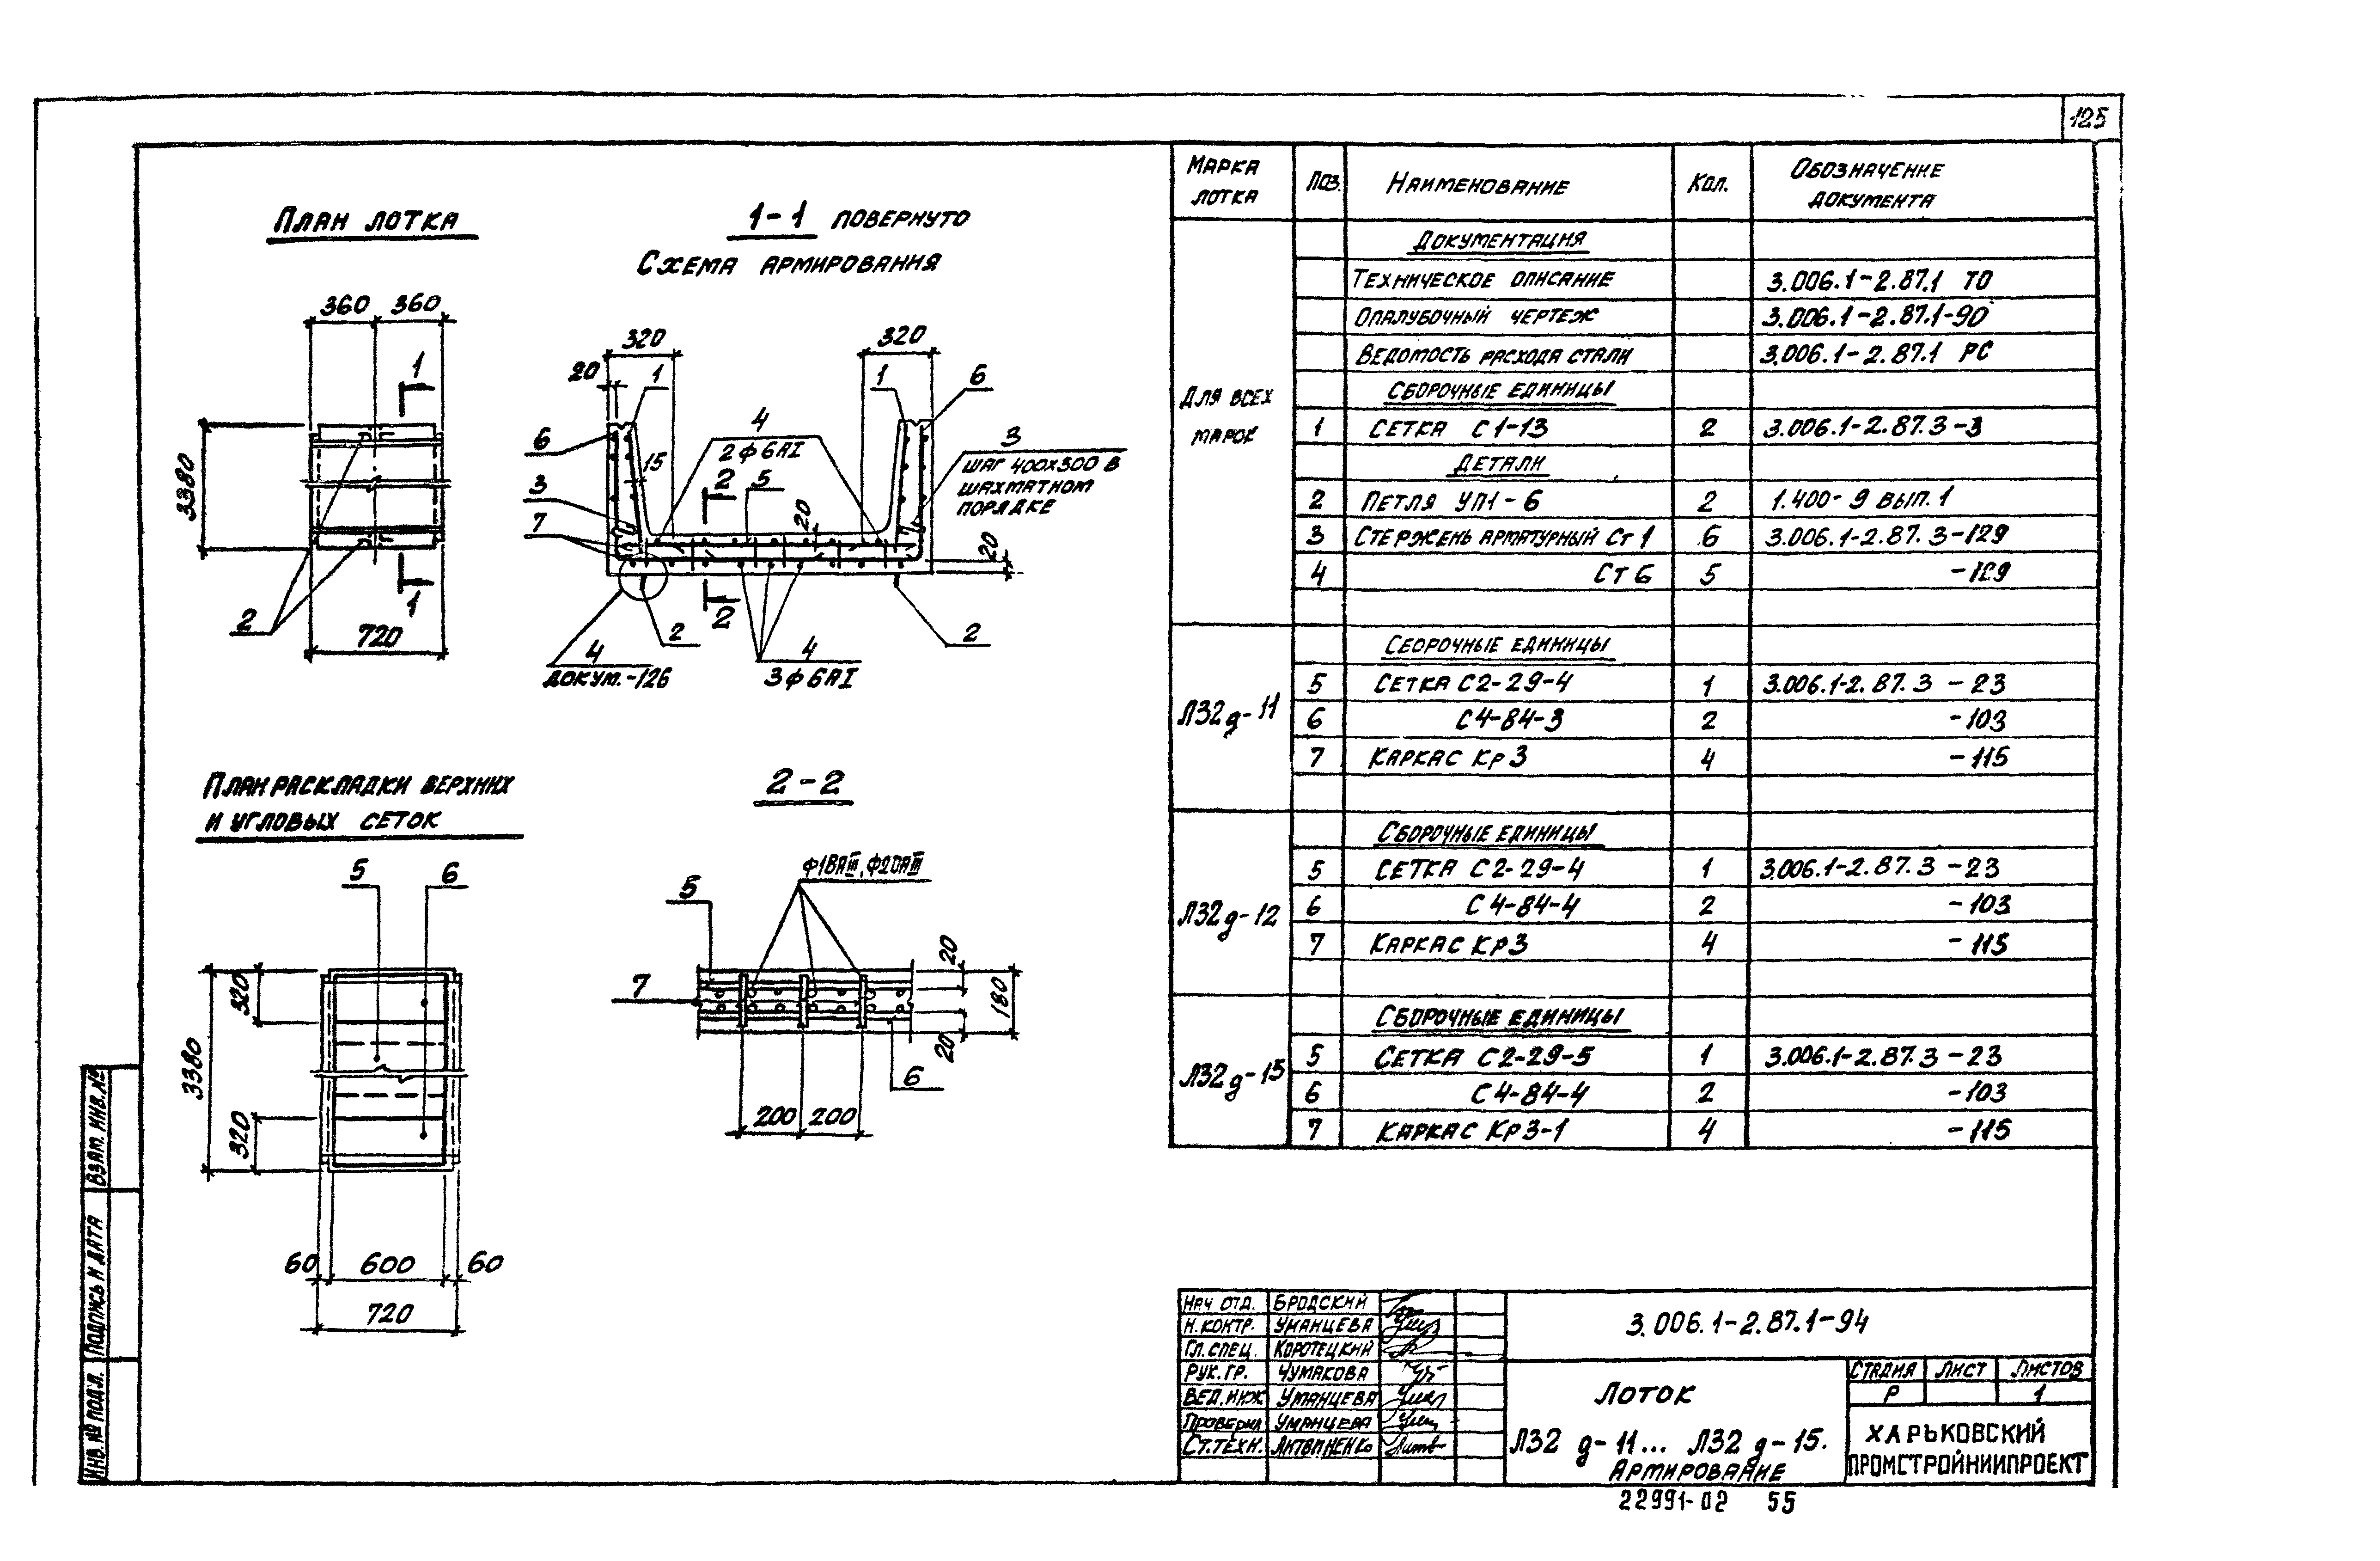 125
План лотка
360 360
1
3380
1
2
720
1-1 повернуто
Схема армирования
320 320
20 1 1 6
4
2ф6АI
6
15
3
шаг 400х300 в
шахматном
порядке
2 5
20
3
7
20
2 2 2
4
докум.-126
4
3ф6АI
План раскладки верхних
и угловых сеток
5 6
320
3380
320
60 600 60
720
2-2
ф18АIII, ф20АIII
5
20
7
180
20
6
200 200
Марка лотка Поз. Наименование Кол. Обозначение документа
Для всех марок
Документация
Техническое описание 3.006.1-2.87.1 ТО
Опалубочный чертеж 3.006.1-2.87.1-90
Ведомость расхода стали 3.006.1-2.87.1 РС
Сборочные единицы
1 Сетка С1-13 2 3.006.1-2.87.3-3
Детали
2 Петля УП1-6 2 1.400-9 вып.1
3 Стержень арматурный Ст1 6 3.006.1-2.87.3-129
4 Ст6 5 -129
Л32д-11
Сборочные единицы
5 Сетка С2-29-4 1 3.006.1-2.87.3-23
6 С4-84-3 2 -103
7 Каркас Кр3 4 -115
Л32д-12
Сборочные единицы
5 Сетка С2-29-4 1 3.006.1-2.87.3-23
6 С4-84-4 2 -103
7 Каркас Кр3 4 -115
Л32д-15
Сборочные единицы
5 Сетка С2-29-5 1 3.006.1-2.87.3-23
6 С4-84-4 2 -103
7 Каркас Кр3-1 4 -115
Взам. инв.№
Подпись и дата
Инв.№ подл.
Нач отд. Бродский
Н.контр. Уманцева
Гл.спец. Коротецкий
Рук.гр. Чумакова
Вед.инж Уманцева
Проверил Уманцева
Ст.техн. Литвиненко
3.006.1-2.87.1-94
Лоток
Л32 д-11... Л32 д-15.
Армирование
Стадия Лист Листов
Р 1
Харьковский
Промстройниипроект
22991-02 55